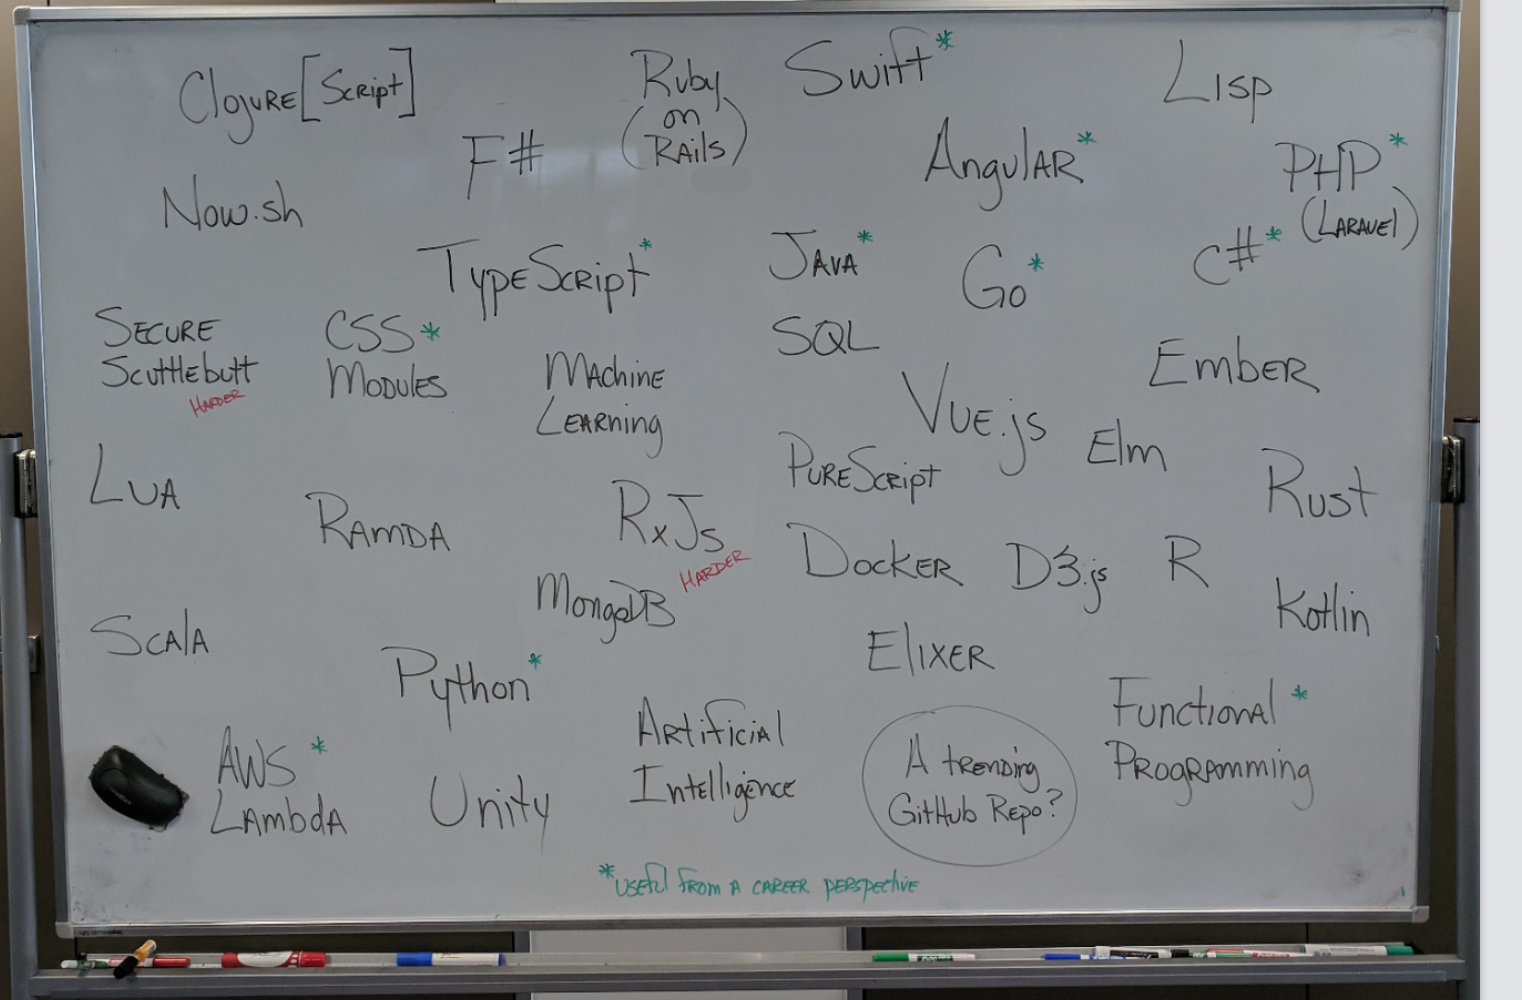 Clojure[Script]
Ruby
(on
Rails)
Swift*
Lisp
F#
Angular*
PHP*
(Laravel)
Now.sh
TypeScript*
Java*
Go*
C#*
Secure
Scuttlebutt
HARDER
CSS*
Modules
Machine
Learning
SQL
Vue.js
Ember
Elm
PureScript
Rust
Lua
Ramda
RxJs
HARDER
MongoDB
Docker
D3.js
R
Kotlin
Scala
Python*
Elixer
Functional*
Programming
AWS*
Lambda
Unity
Artificial
Intelligence
A trending
GitHub Repo?
*useful from a career perspective